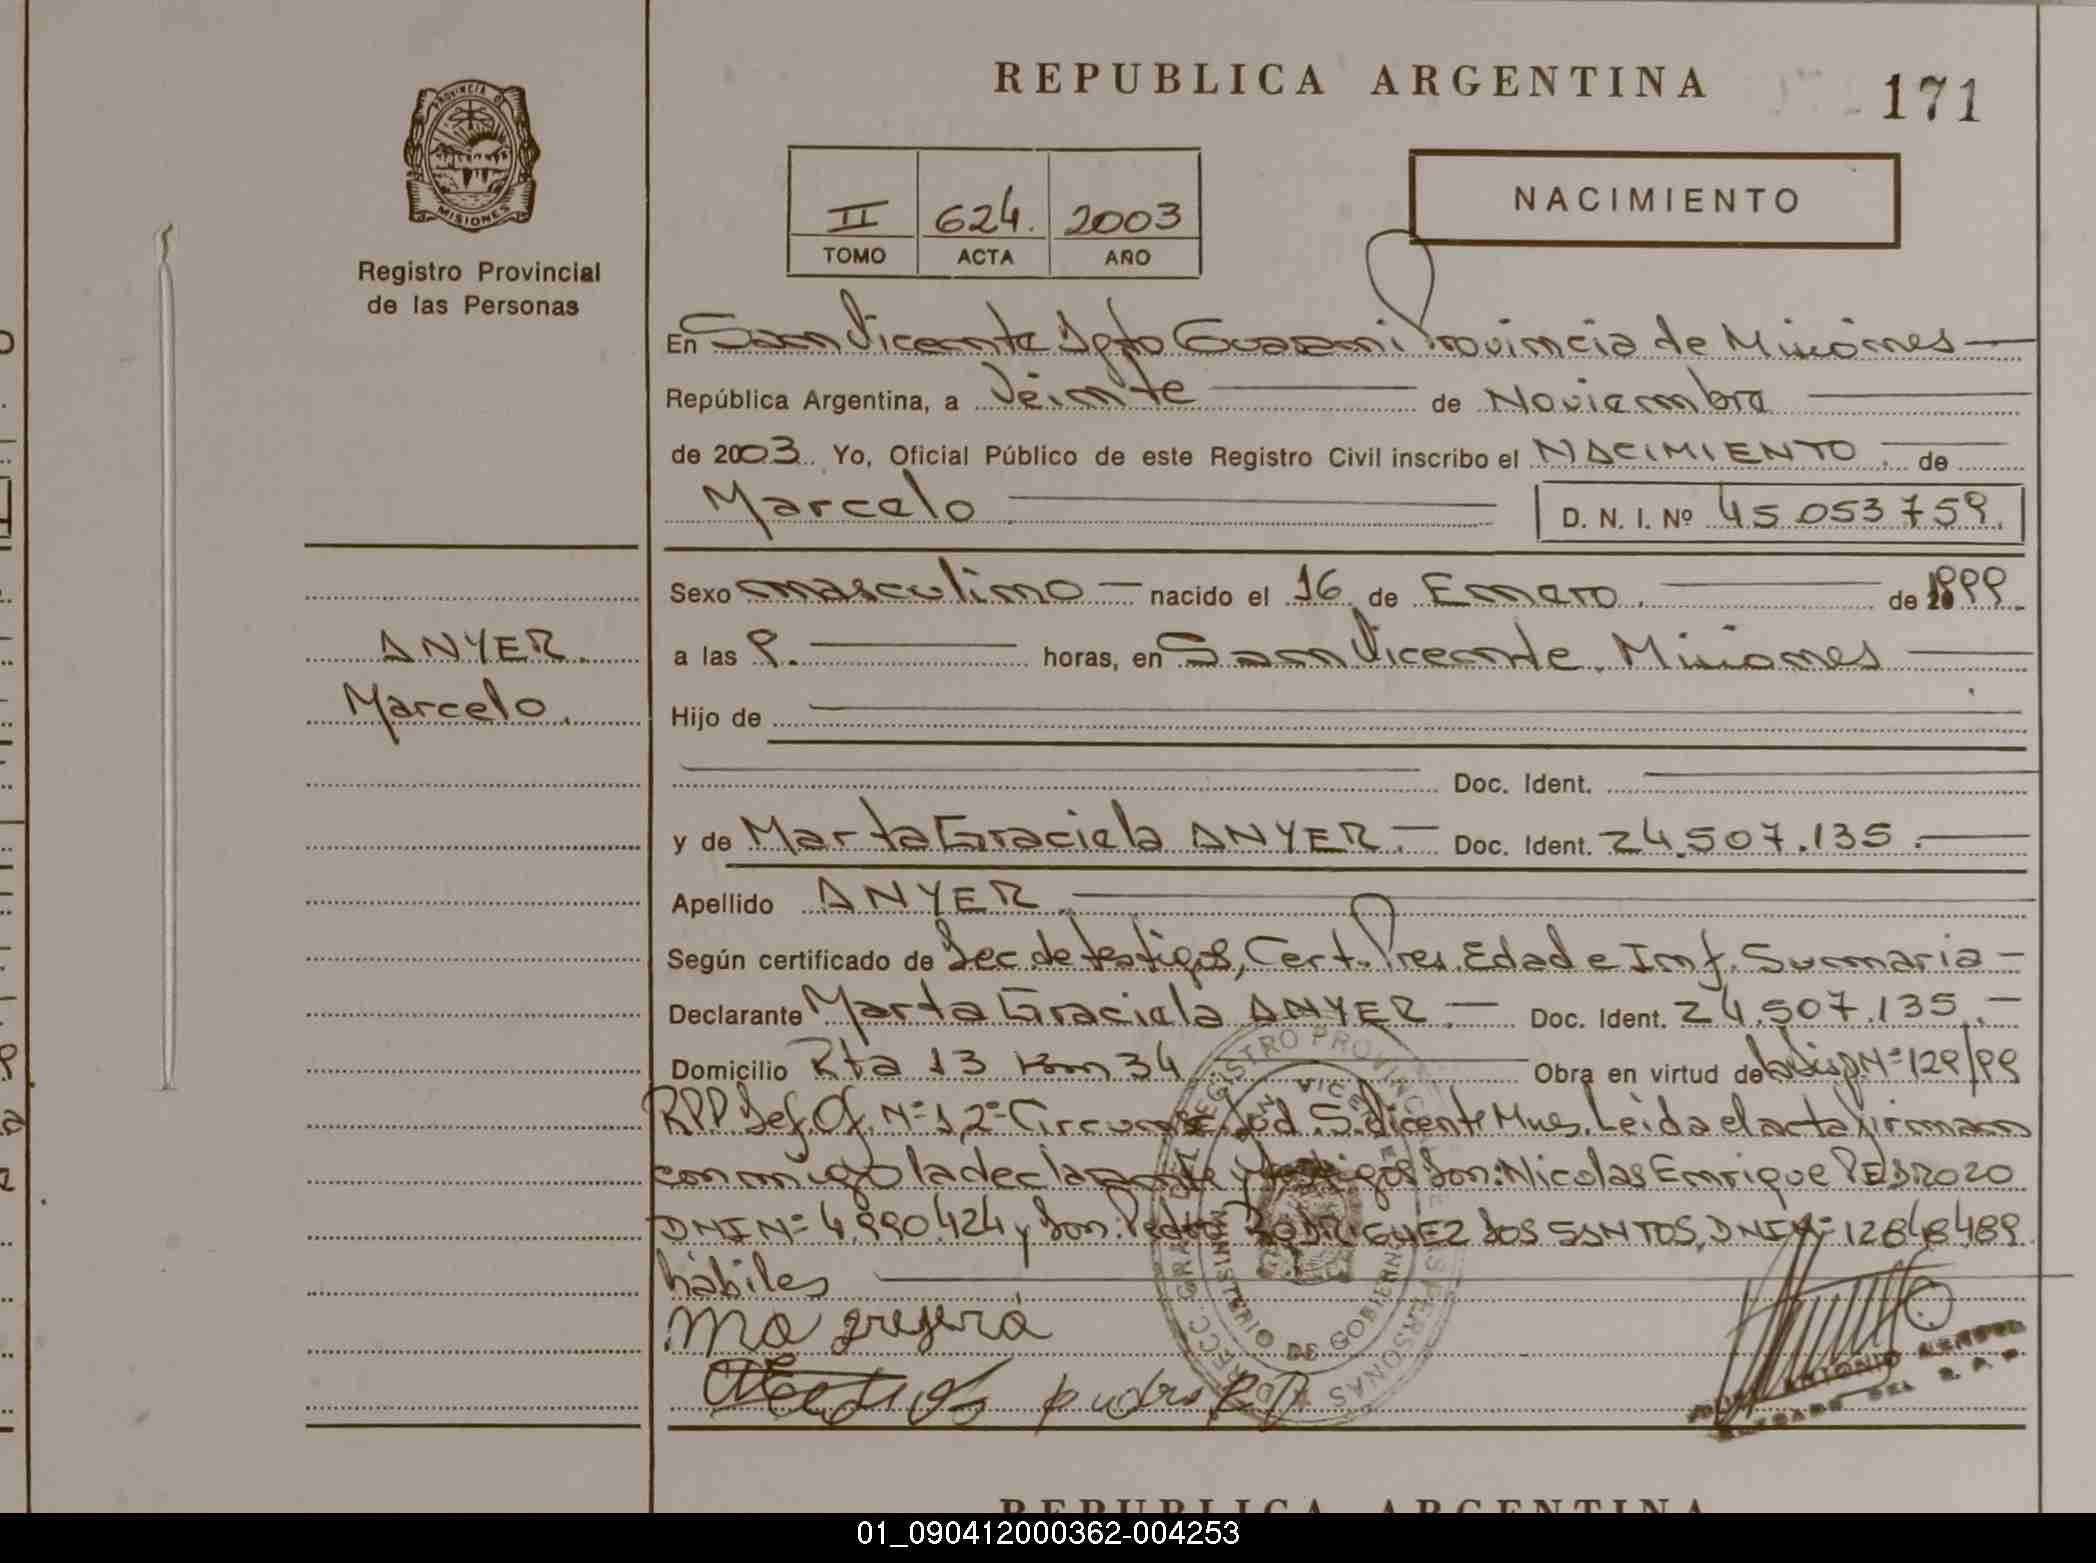 REPUBLICA ARGENTINA
171
PROVINCIA DE
MISIONES
Registro Provincial
de las Personas
II 624. 2003
TOMO ACTA AÑO
NACIMIENTO
En San Vicente Dpto Guarani Provincia de Misiones
República Argentina, a Veinte de Noviembre
de 2003. Yo, Oficial Público de este Registro Civil inscribo el NACIMIENTO. de
Marcelo D. N. I. Nº 45.053759.
Sexo masculino nacido el 16 de Enero. de 1999.
a las 9. horas, en San Vicente, Misiones
ANYER
Marcelo.
Hijo de
Doc. Ident.
y de Marta Graciela ANYER.- Doc. Ident. 24.507.135.
Apellido ANYER
Según certificado de Dec. de testigos, Cert. Pres. Edad e Inf. Sumaria -
Declarante Marta Graciela ANYER.- Doc. Ident. 24.507.135.-
Domicilio Rta 13 Km 34 Obra en virtud de Disp. Nº 129/99
RPP Def. Of. Nº 1, 2º Circunsc. Jud. S. Vicente Mnes. Leida el acta firman
conmigo la declarante y testigos Don: Nicolas Enrique PEDROZO
DNI Nº 4.990.424 y Don: Pedro RODRIGUEZ DOS SANTOS, DNI Nº 12848489
hábiles
DIRECC. GRAL. DEL REGISTRO PROVINCIAL DE LAS PERSONAS
MINISTERIO DE GOBIERNO
ANTONIO
REPUBLICA ARGENTINA
01_090412000362-004253